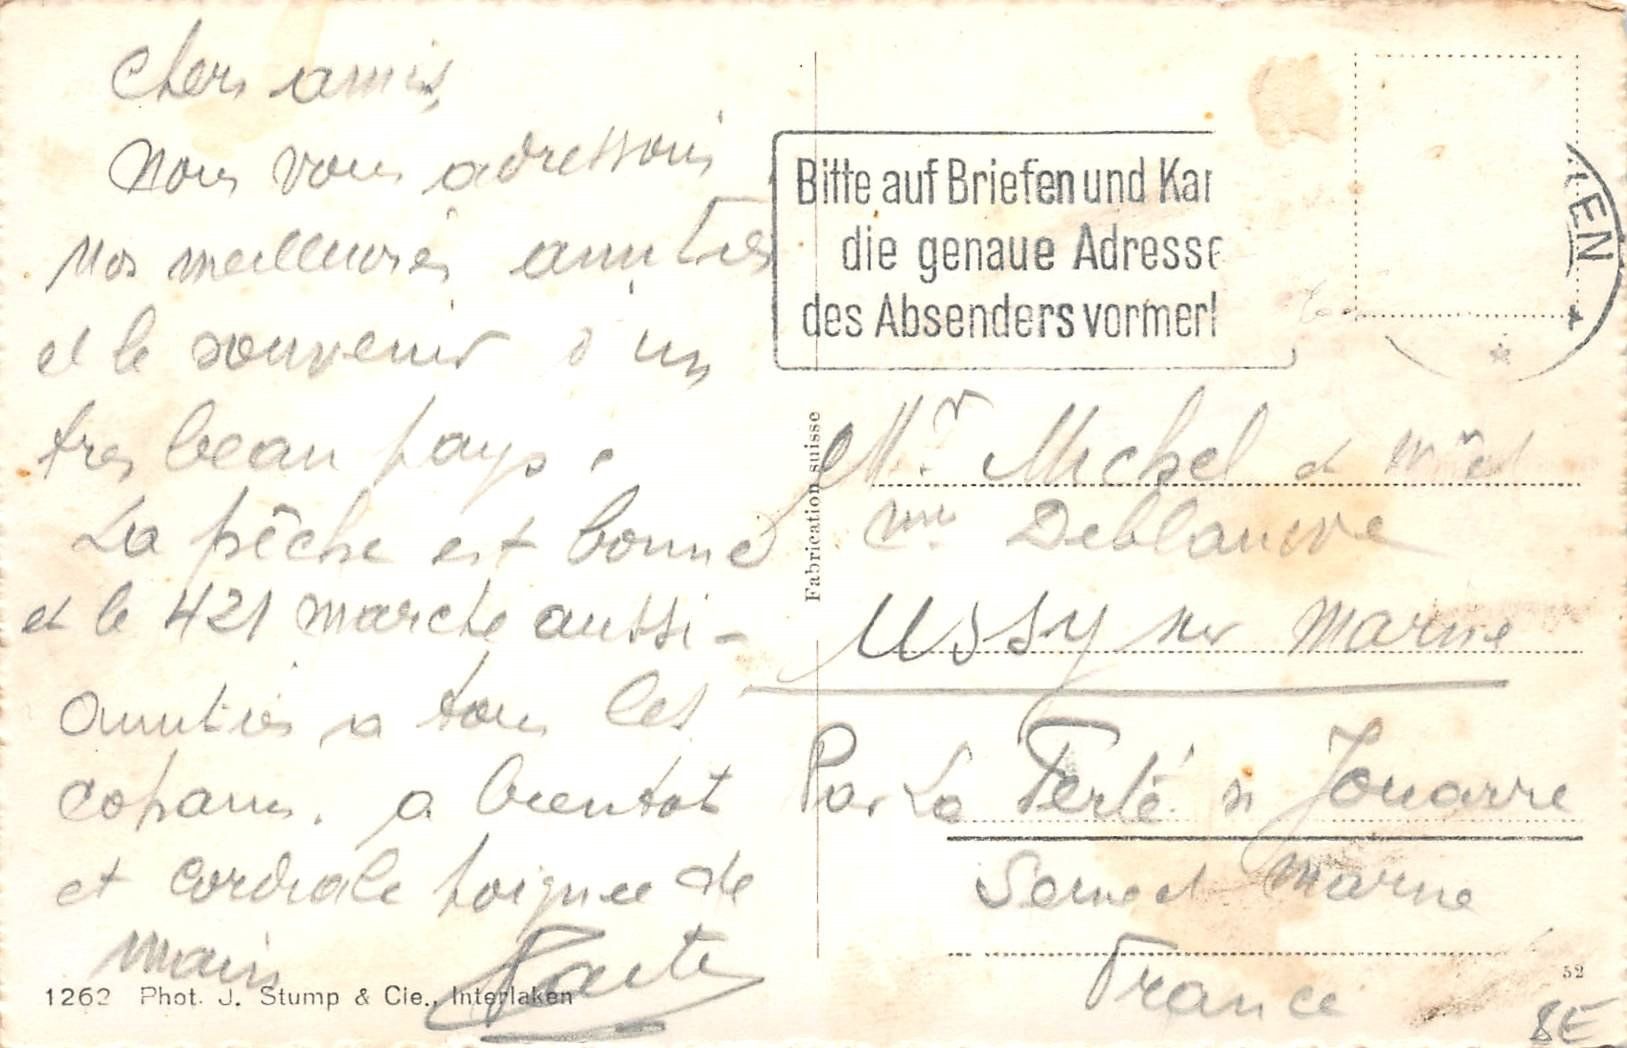 Chers amis,
Nous vous adressons
Nos meilleures amitiés
et le souvenir d'un
tres beau pays.
La pêche est bonne
et le 421 marche aussi -
Amitiés a tous les
copains. a bientot
et cordiale poignee de
mains
1262 Phot. J. Stump & Cie., Interlaken
Fabrication suisse
Bitte auf Briefen und Kar
die genaue Adresse
des Absenders vormerk
KEN
Mr Michel et
Mme
Ussy sur Marne
Par La Ferté s Jouarre
Seine et Marne
France
52
8E